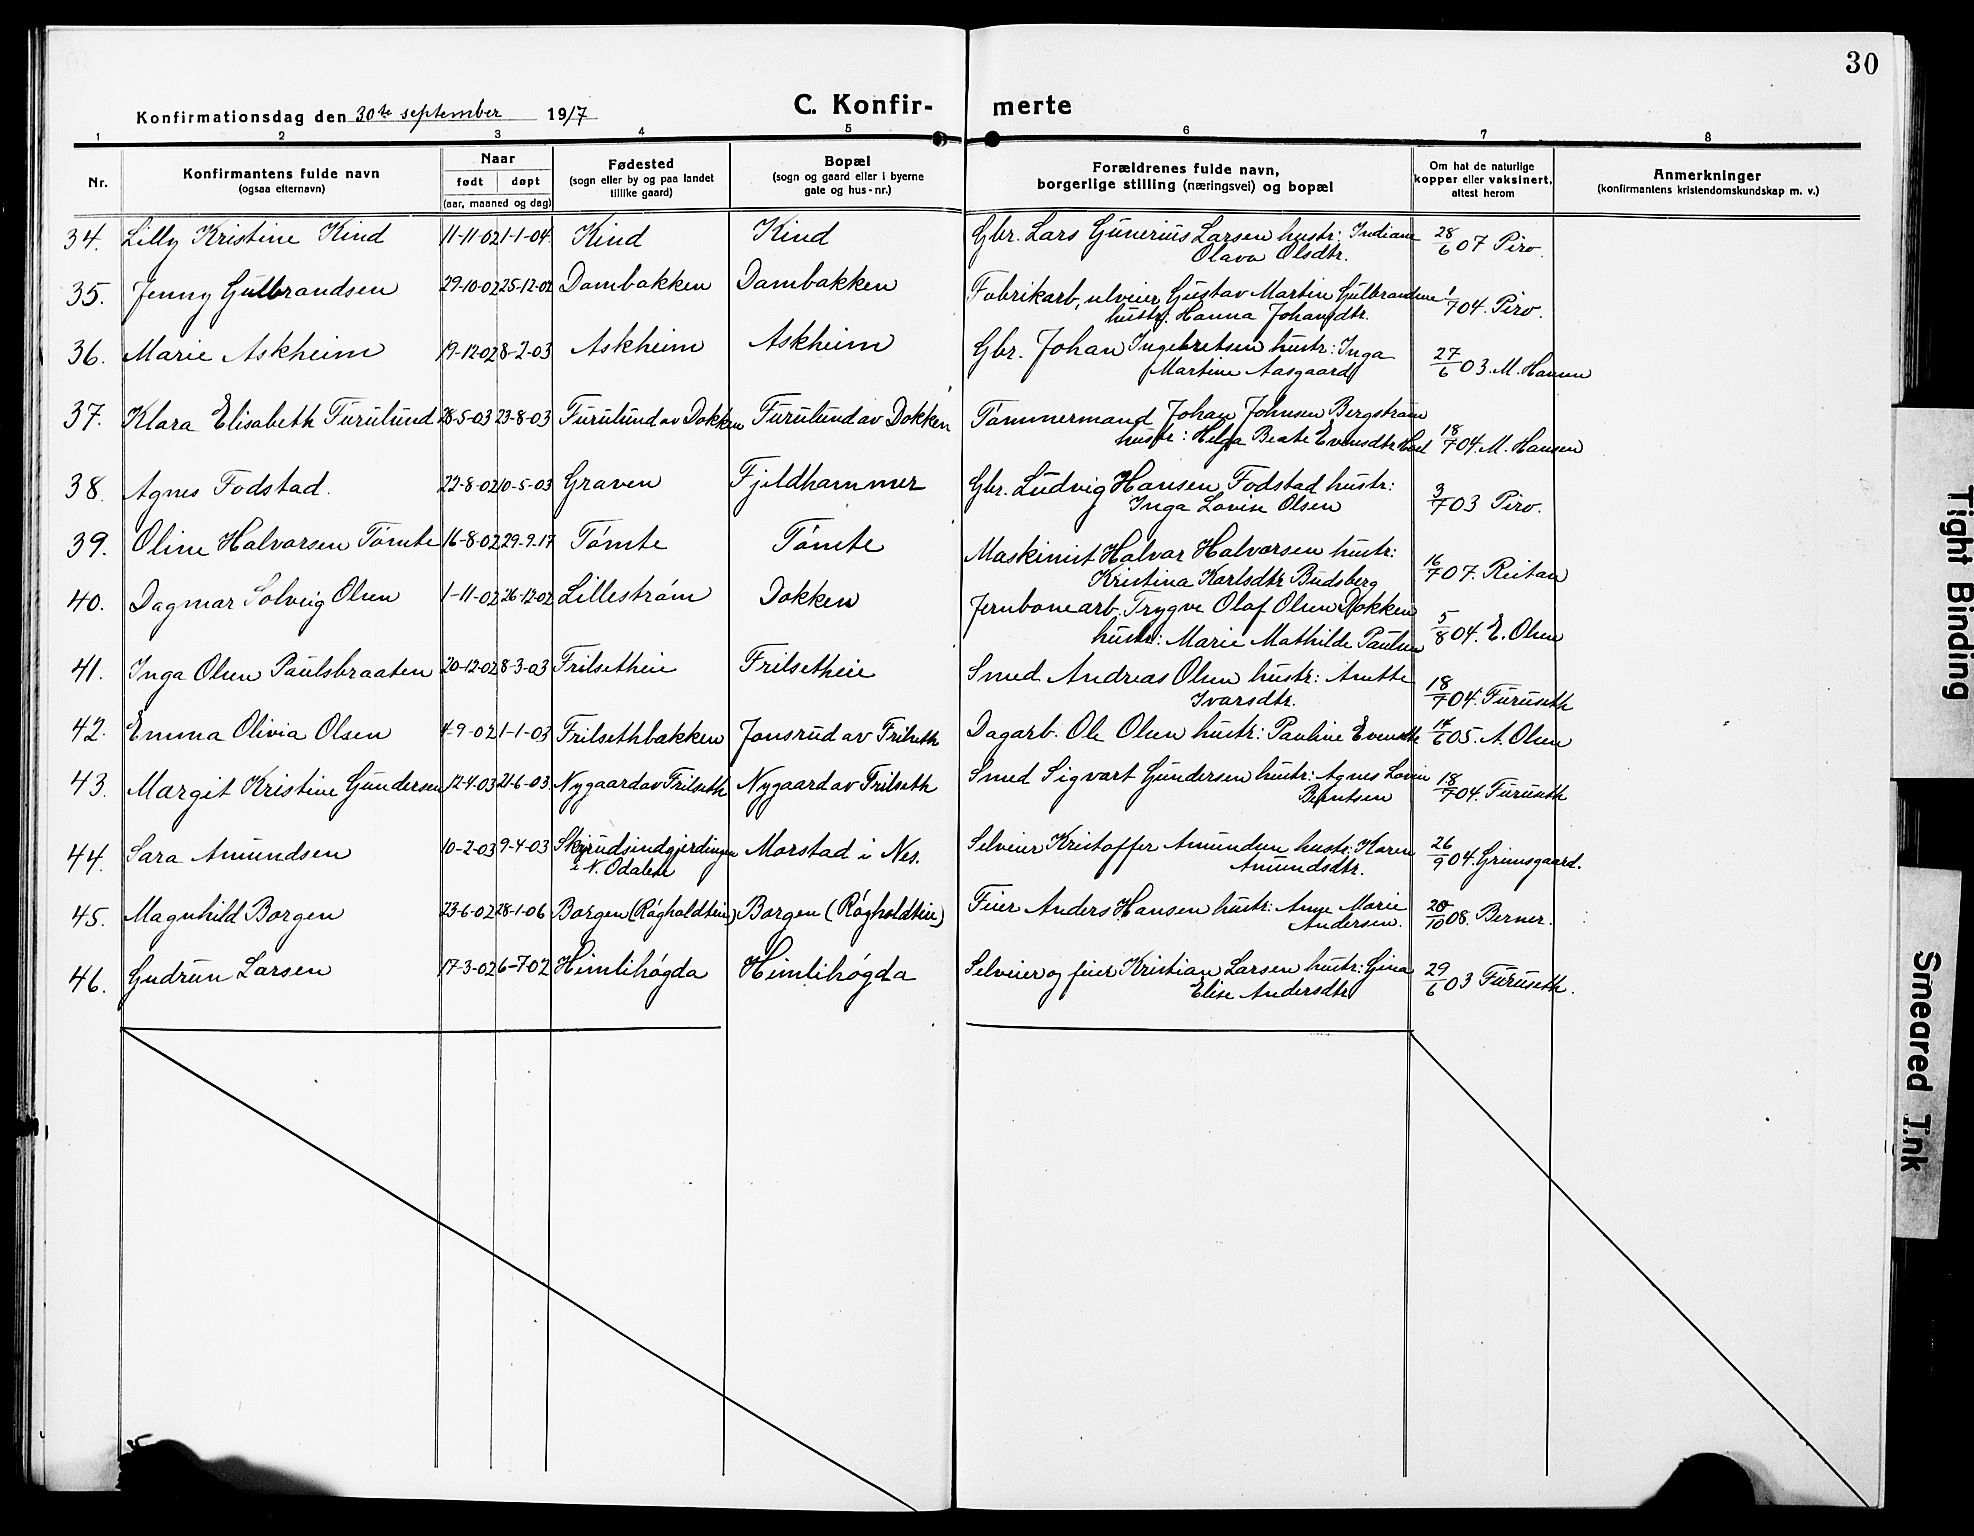 30
Konfirmationsdag den 30te september 1917
C. Konfir- merte
1 2 3 4 5 6 7 8
Nr.
Konfirmantens fulde navn
(ogsaa efternavn)
Naar
født døpt
(aar, maaned og dag)
Fødested
(sogn eller by og paa landet
tillike gaard)
Bopæl
(sogn og gaard eller i byerne
gate og hus-nr.)
Forældrenes fulde navn,
borgerlige stilling (næringsvei) og bopæl
Om hat de naturlige
kopper eller vaksinert,
attest herom
Anmerkninger
(konfirmantens kristendomskundskap m. v.)
34. Lilly Kristine Kind 11-11-02 1-1-04 Kind Kind Gbr. Lars Gunerius Larsen hustr: Indiane 28/6 07 Piro.
Olava Olsdtr.
35. Jenny Gulbrandsen 29-10-02 25-12-02 Dambakken Dambakken Fabrikarb, selveier Gustav Martin Gulbrandsen 1/7 04. Piro.
hustr. Hanna Johansdtr.
36. Marie Askheim 19-12-02 8-2-03 Askheim Askheim Gbr. Johan Ingebretsen hustr: Inga 27/6 03. M. Hansen
Martine Aasgaard
37. Klara Elisabeth Furulund 28-5-03 23-8-03 Furulund av Dokken Furulund av Dokken Tømmermand Johan Johnsen Bergstrøm
hustr: Helga Beate Evensdtr. 18/7 04. M. Hansen
38. Agnes Fodstad. 22-8-02 10-5-03 Graven Fjeldhammer Gbr. Ludvig Hansen Fodstad hustr: 3/7 03 Piro.
Inga Lovise Olsen
39. Oline Halvorsen Tømte 16-8-02 29-9-17 Tømte Tømte Maskinist Halvar Halvorsen hustr: 16/7 07. Reitan
Kristina Karlsdtr Budsberg
40. Dagmar Solveig Olsen 1-11-02 26-12-02 Lillestrøm Dokken Jernbanearb. Trygve Olaf Olsen Dokken 5/8 04. E. Olsen
hustr: Marie Mathilde Paulsen
41. Inga Olsen Paulsbraaten 20-12-02 8-3-03 Frilsetheie Frilsetheie Smed Andreas Olsen hustr: Anette 18/7 04. Furuseth
Ivarsdtr.
42. Emma Olivia Olsen 4-9-02 1-1-03 Frilsethbakken Jonsrud av Frilseth Dagarb. Ole Olsen hustr: Pauline Evensdtr 14/6 05. A. Olsen
43. Margit Kristine Gundersen 12-4-03 21-6-03 Nygaard av Frilseth Nygaard av Frilseth Smed Sigvart Gundersen hustr: Agnes Lovise 18/7 04. Furuseth
Berntsen
44. Sara Amundsen 10-2-03 9-4-03 Skjrudsindgjerdingen Morstad i Nes. Selveier Kristoffer Amundsen hustr: Karen 26/9 04. Grimsgaard.
i N. Odalen Amundsdtr.
45. Magnhild Borgen 23-6-02 28-1-06 Borgen (Røgholdteie) Borgen (Røgholdteie) Feier Anders Hansen hustr: Anne Marie 20/10 08. Berner.
Andersen.
46. Gudrun Larsen 17-3-02 6-7-02 Himlihøgda Himlihøgda Selveier og feier Kristian Larsen hustr: Gina 29/6 03 Furuseth.
Elise Andersdtr
Tight Binding
Smeared Ink